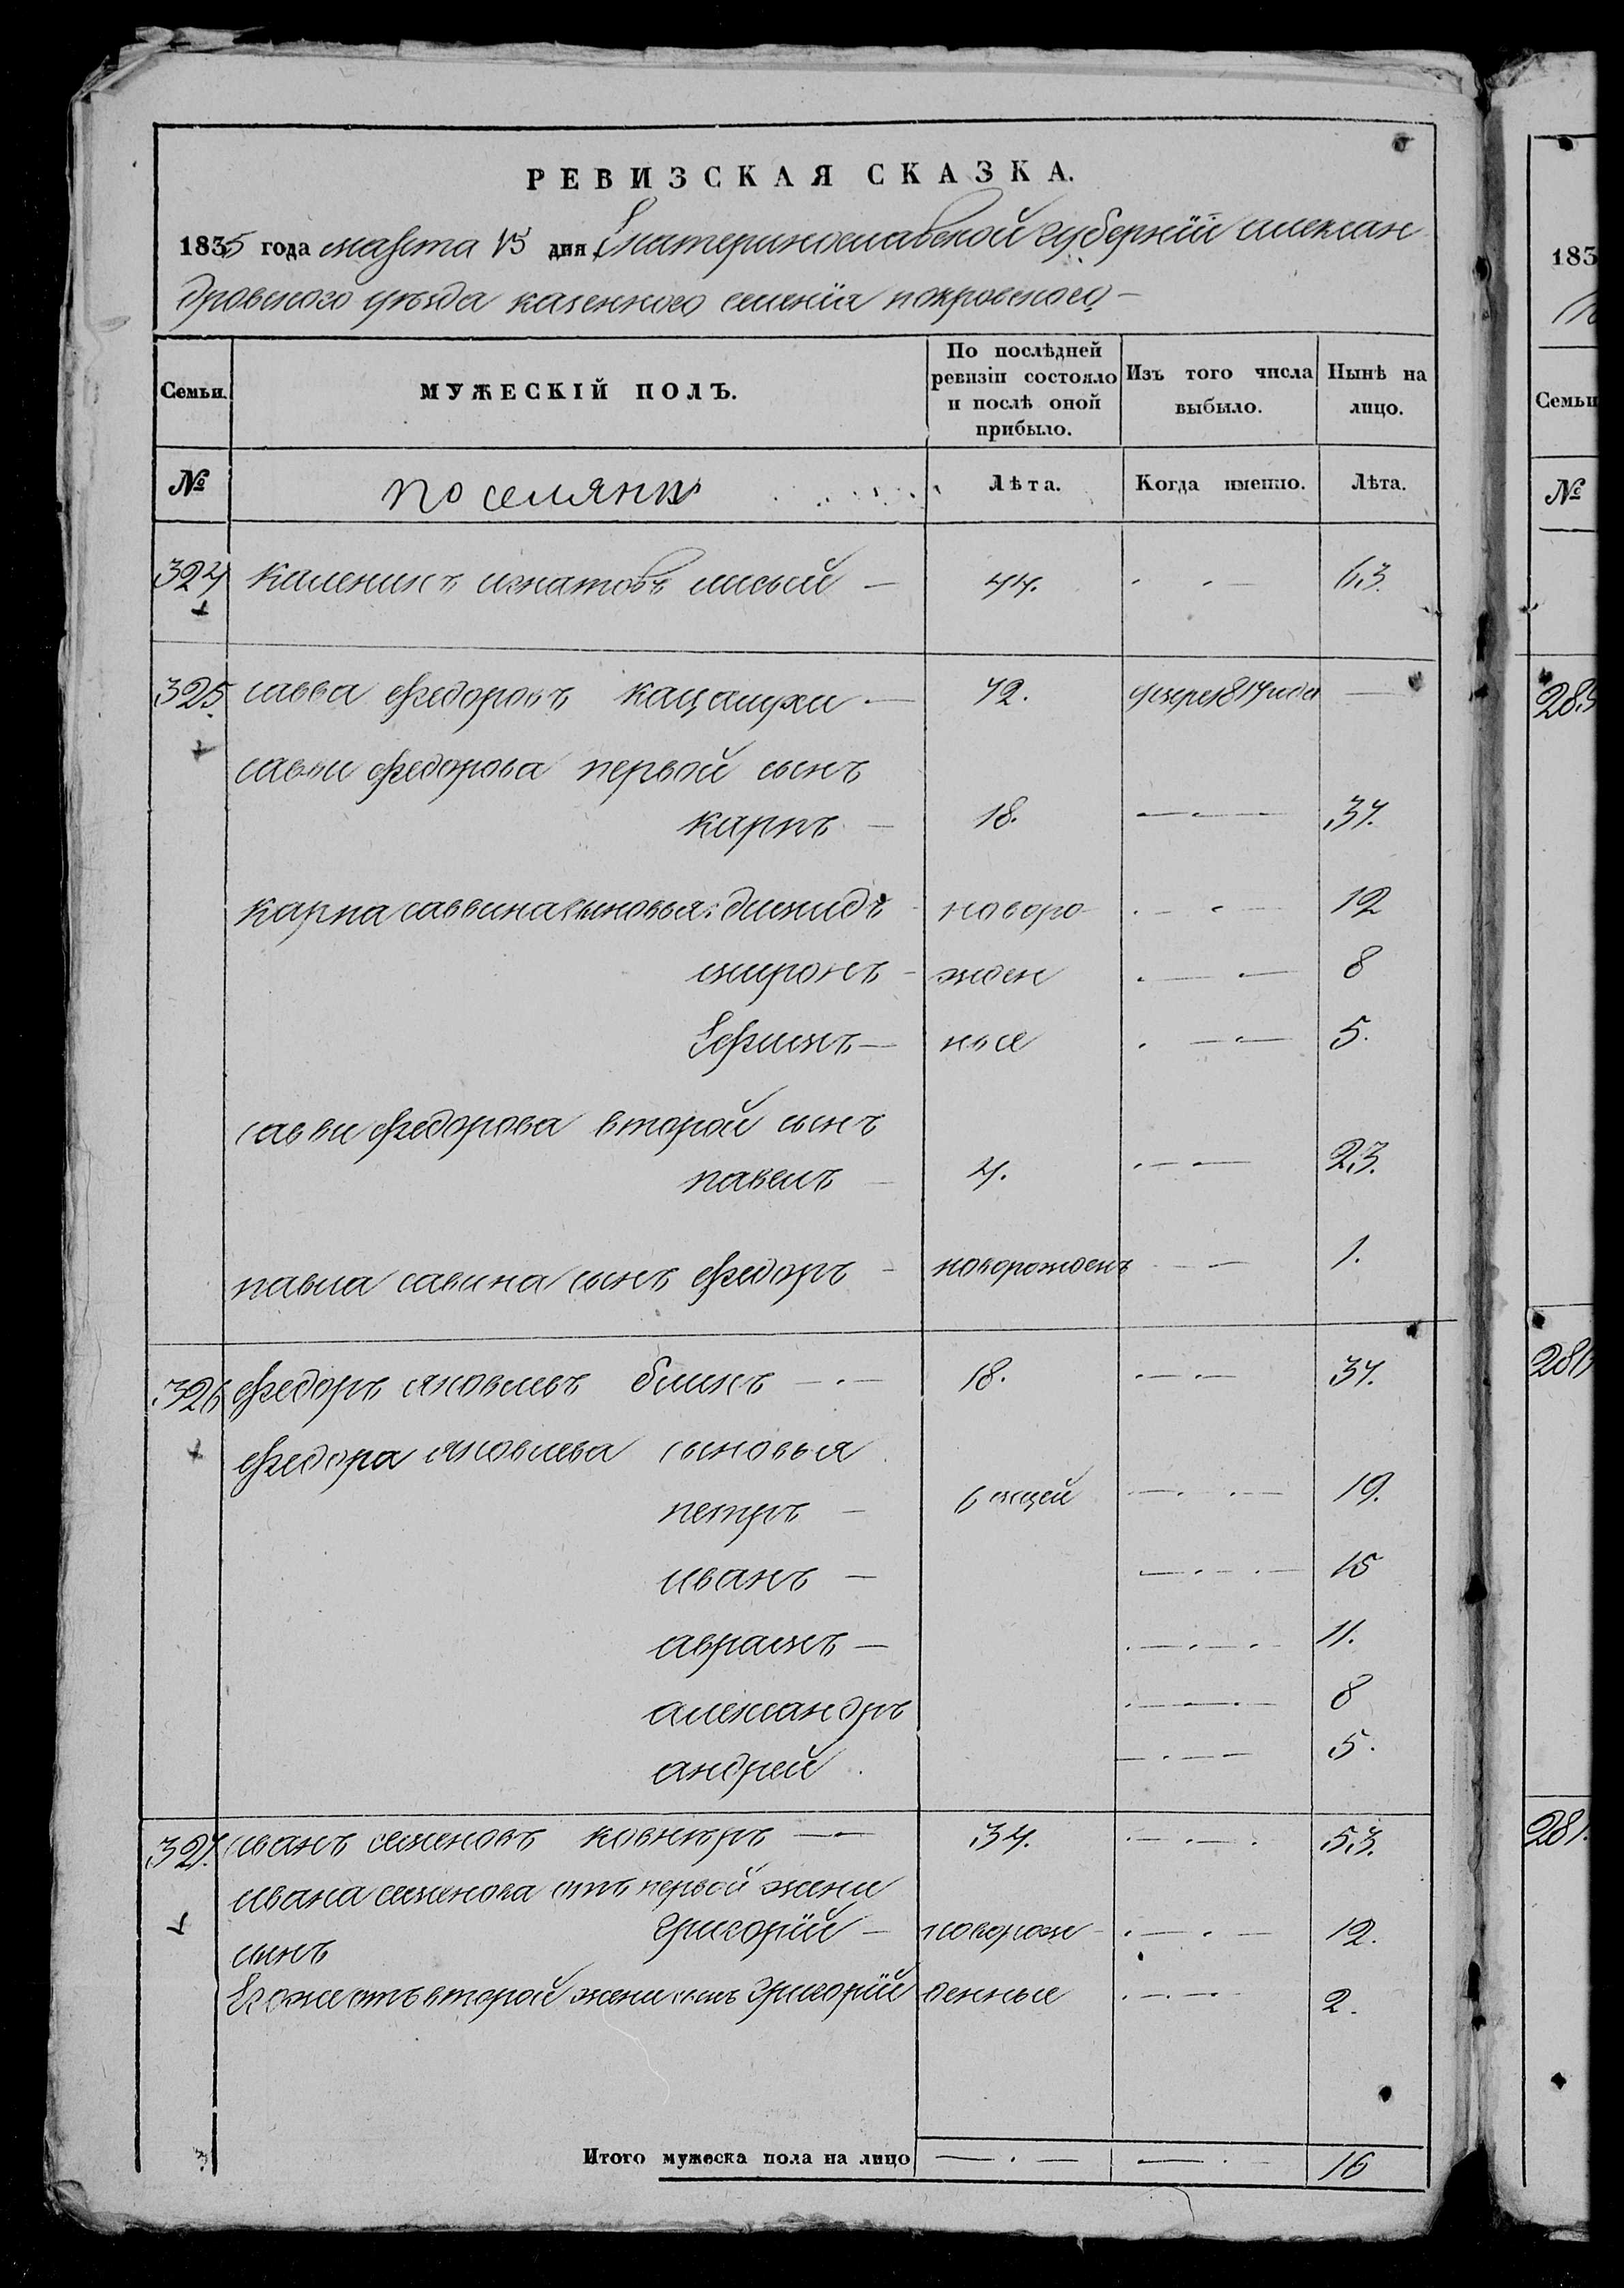 РЕВИЗСКАЯ СКАЗКА.
1835 года марта 15 дня Екатеринославской губернїи алексан
дровского уезда казенного селенїя покровского —
Семьи. МУЖЕСКІЙ ПОЛЪ. По послѣдней ревизіи состояло и послѣ оной прибыло. Изъ того числа выбыло. Нынѣ на лицо.
№ поселяни Лѣта. Когда именно. Лѣта.
324 каленикъ игнатовъ лисый — 44. 63.
325. савва федоровъ — 72. умре 1817 года —
савви федорова первой сынъ
карпъ — 18. 37.
карпа саввина сыновья: диомидъ новоро 12
миронъ - жден 8
Ефимъ — ные 5.
савви федорова второй сынъ
павелъ — 4. 23.
павла савина сынъ федоръ - новорожденъ 1.
326 федоръ яковлевъ блинъ — 18. 37.
федора яковлева сыновья
петръ — 6 мцей 19.
иванъ — 15
аврамъ — 11.
александръ 8
андрей 5.
327. иванъ семеновъ ковнѣръ — 34. 53.
ивана семенова отъ первой жени
сынъ григорїй — новорож 12.
Егоже отъ второй жени сынъ григорїй денные 2.
Итого мужеска пола на лицо 16
183
Семьи
№
285
286
287.